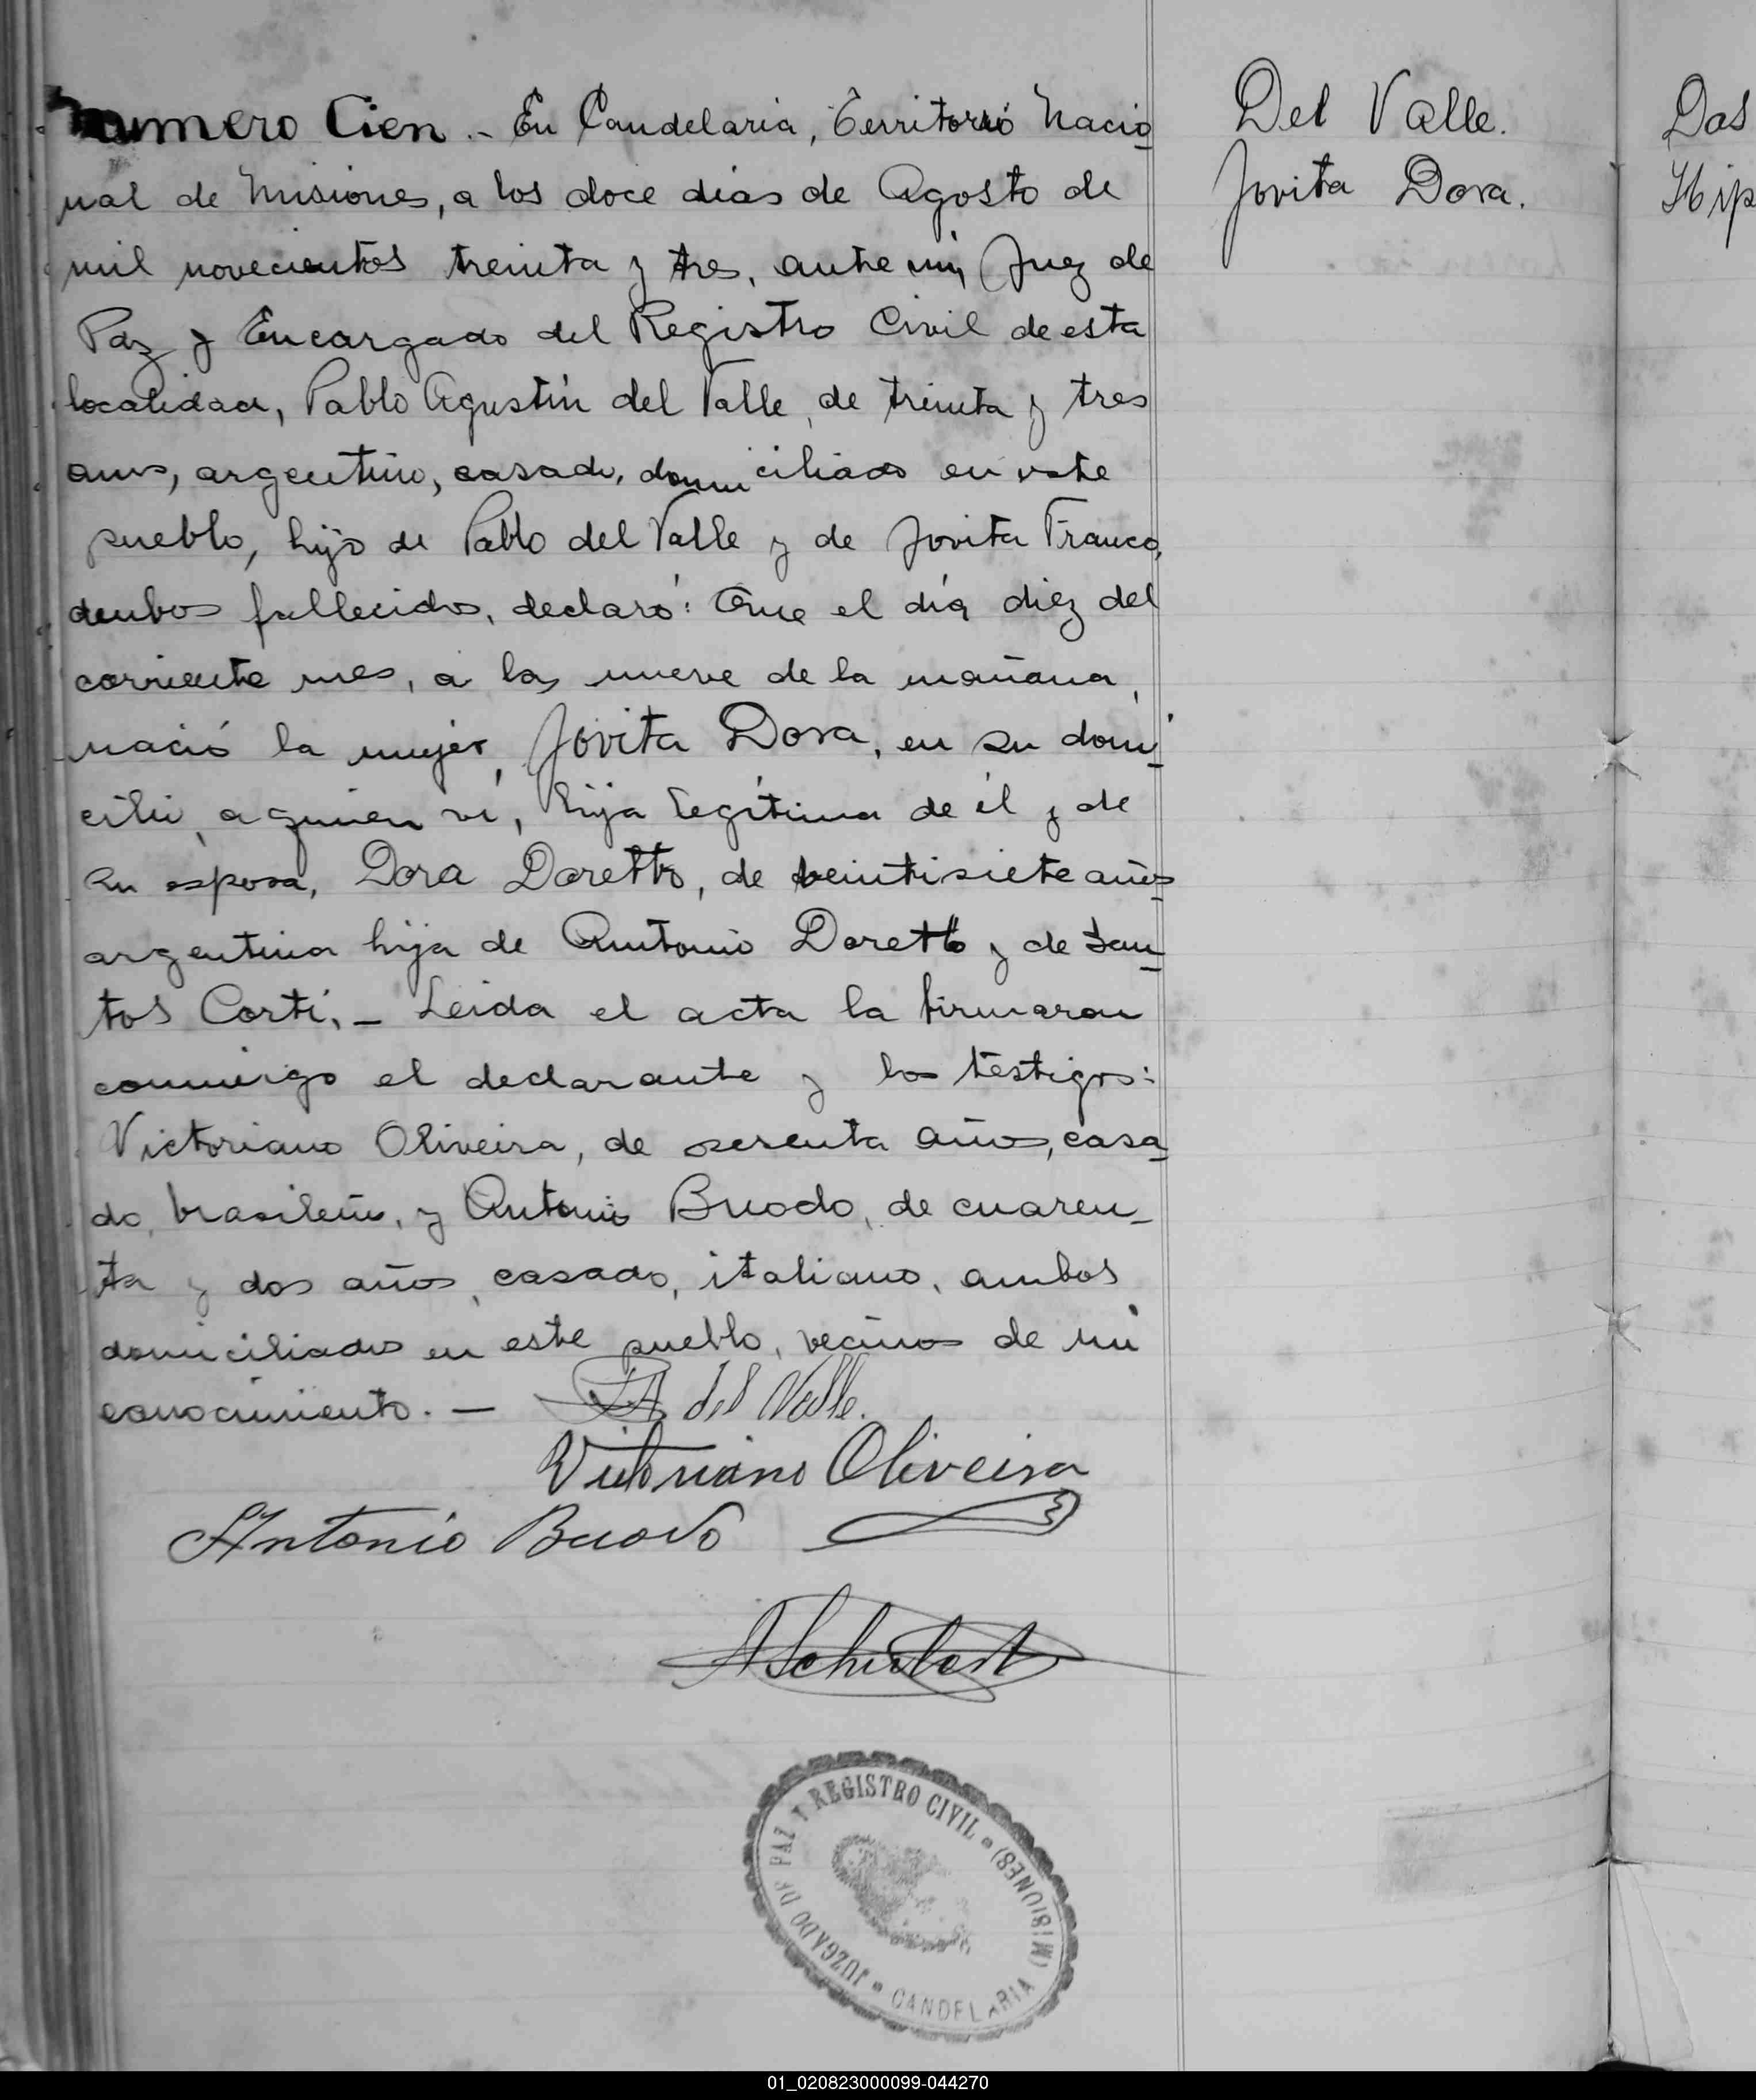 Número Cien.- En Candelaria, Territorio Nacio
nal de Misiones, a los doce dias de Agosto de
mil novecientos treinta y tres, ante mi, Juez de
Paz y Encargado del Registro Civil de esta
localidad, Pablo Agustín del Valle, de treinta y tres
años, argentino, casado, domiciliado en este
pueblo, hijo de Pablo del Valle y de Jovita Franco,
ambos fallecidos, declaró: Que el día diez del
corriente mes, a las nueve de la mañana,
nació la mujer, Jovita Dora, en su domi
cilio, a quien ví, hija legítima de él y de
su esposa, Dora Doretto, de veintisiete años
argentina hija de Antonio Doretto y de San
tos Corti.- Leida el acta la firmaron
conmigo el declarante y los testigos:
Victoriano Oliveira, de sesenta años, casa
do, brasileño, y Antonio Buodo, de cuaren-
ta y dos años, casado, italiano, ambos
domiciliados en este pueblo, vecinos de mi
conocimiento.-
PA del Valle.
Victoriano Oliveira
Antonio Buodo
A Schubert
JUZGADO DE PAZ Y REGISTRO CIVIL
CANDELARIA (MISIONES)
Del Valle.
Jovita Dora.
Das
Hip
01_020823000099-044270